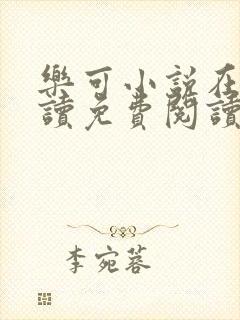 樂可小説在
讀免費閱讀
李宛蓉